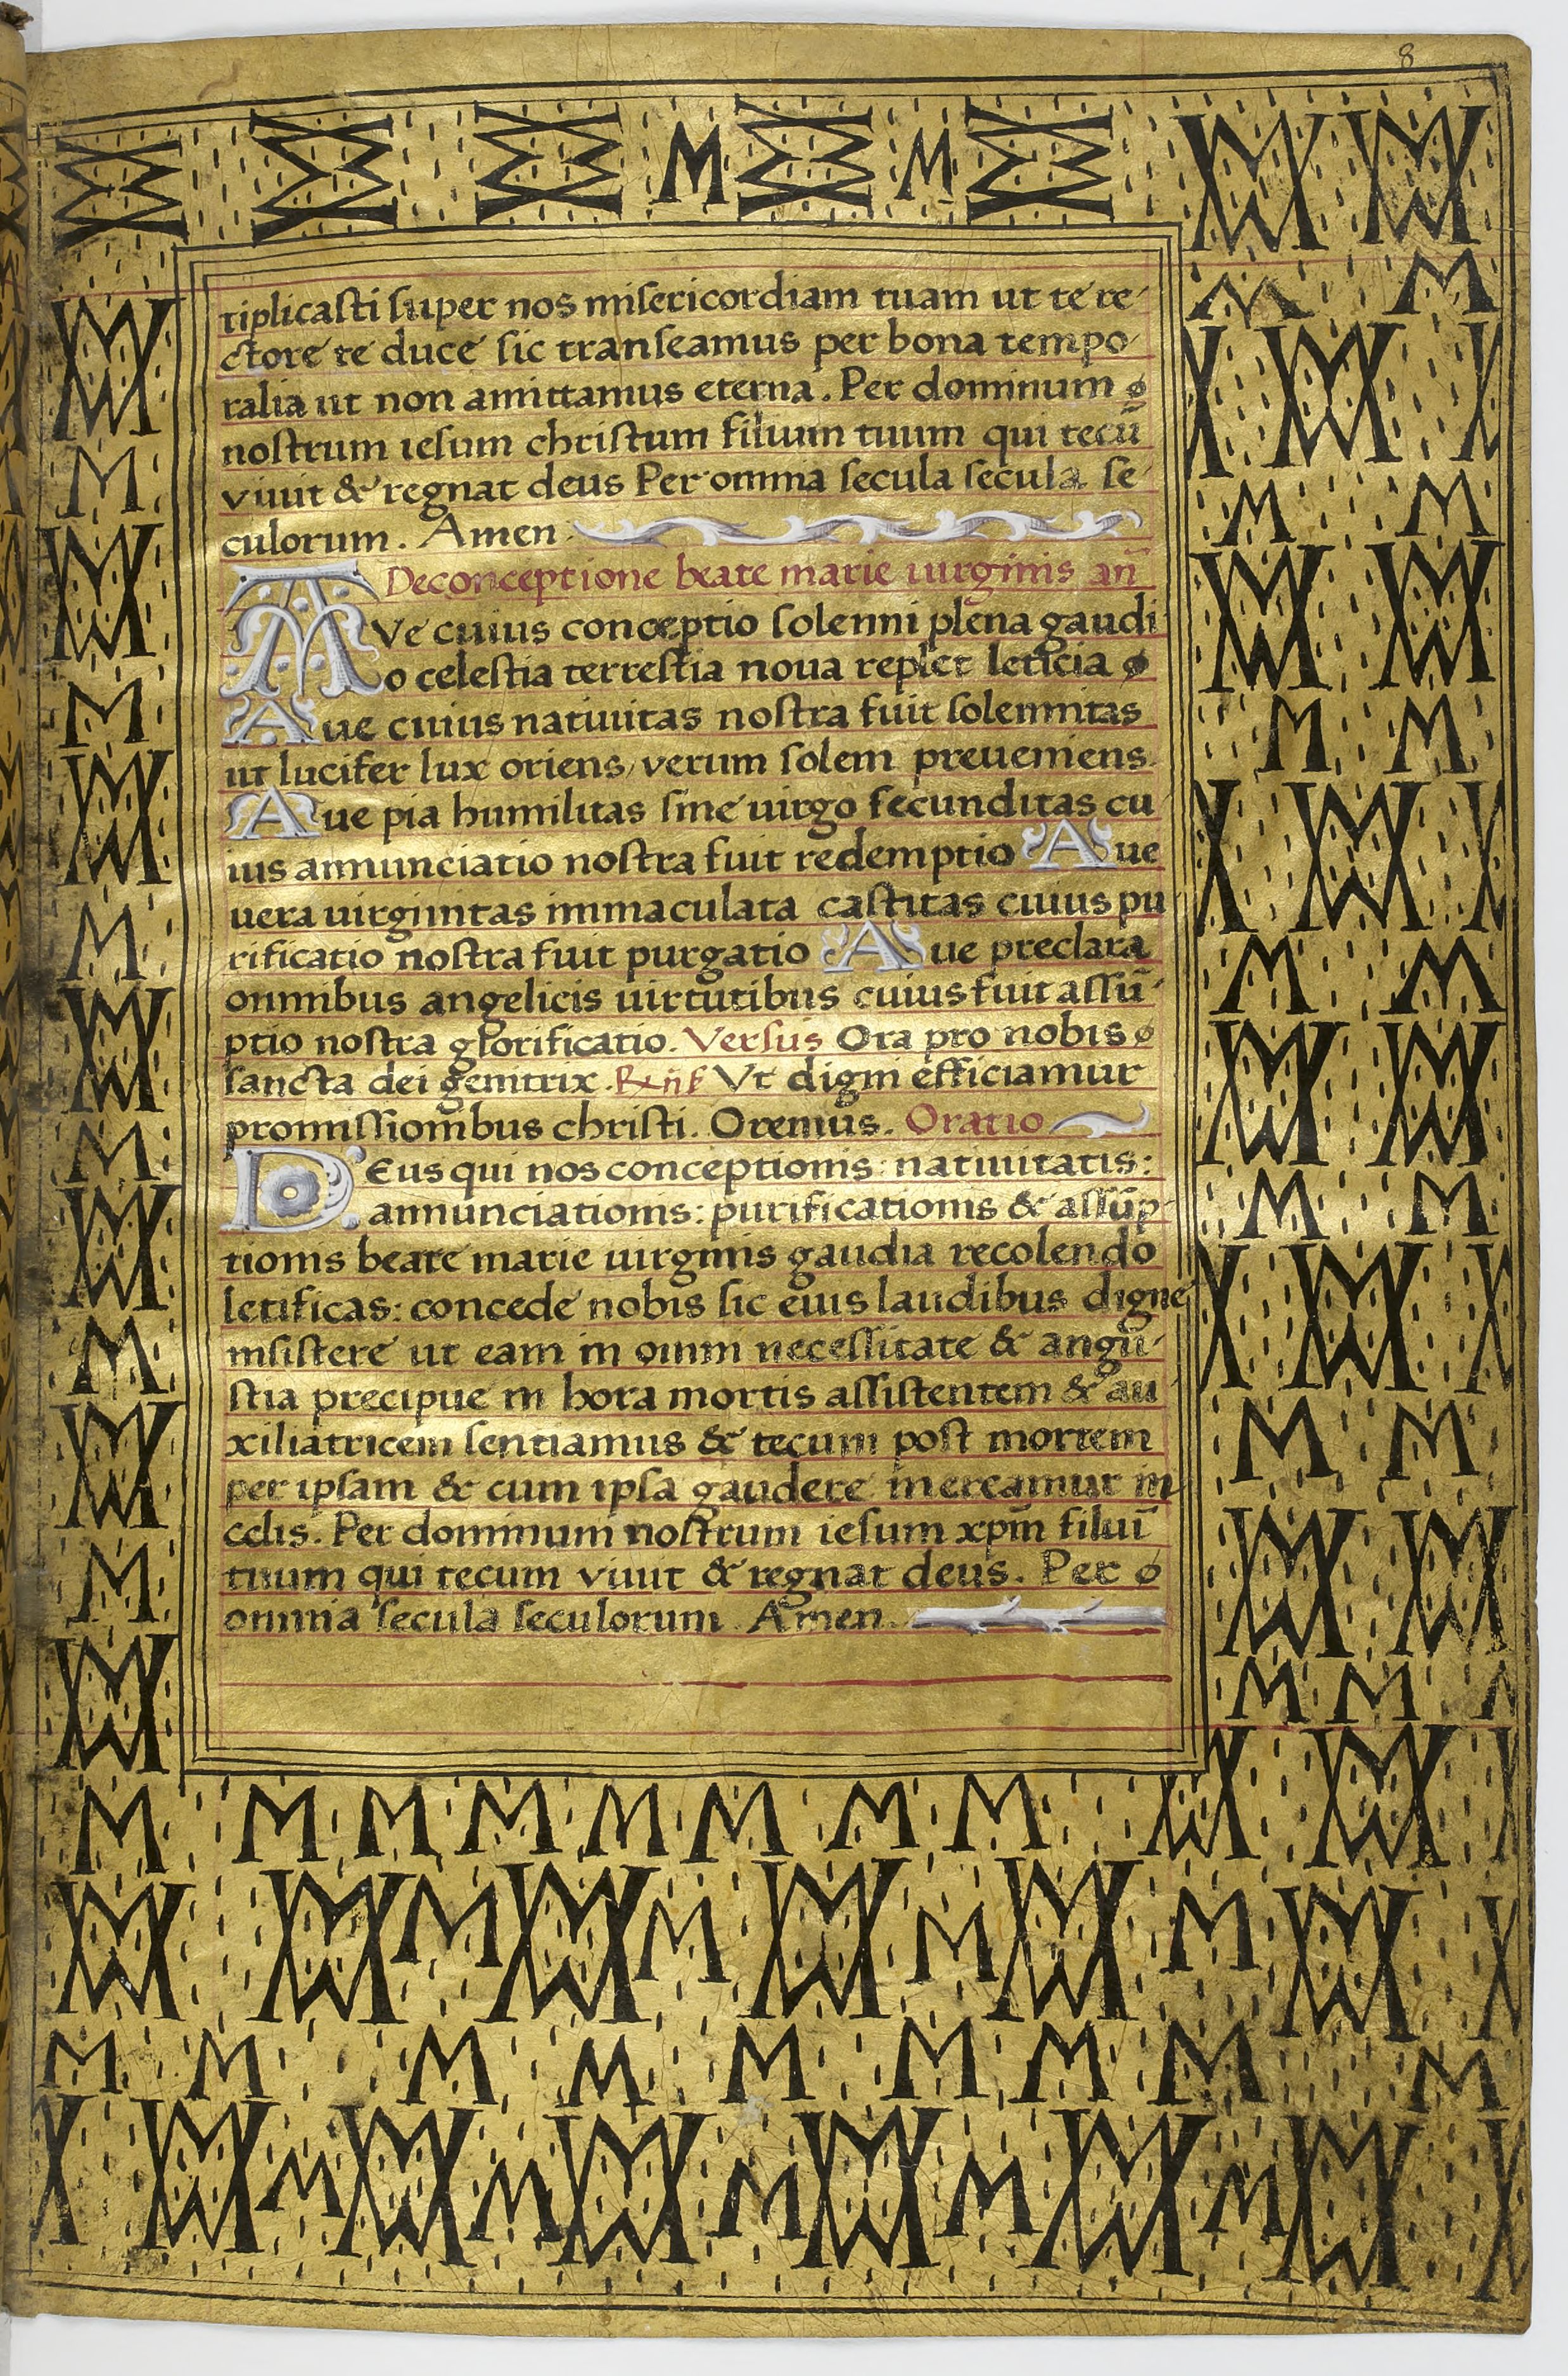 8
tiplicasti super nos misericordiam tuam ut te re
ctore te duce sic transeamus per bona tempo
ralia ut non amittamus eterna. Per dominum
nostrum iesum christum filium tuum qui tecū
vivit & regnat deus Per omnia secula secula se
culorum. Amen
De conceptione beate marie uirginis an̄
AVe cuius conceptio solenni plena gaudi
o celestia terrestia noua replet leticia
Aue cuius natiuitas nostra fuit solemnitas
ut lucifer lux oriens, verum solem preueniens.
Aue pia humilitas sine uirgo fecunditas cu
ius annunciatio nostra fuit redemptio Aue
uera uirginitas immaculata castitas cuius pu
rificatio nostra fuit purgatio Aue preclara
omnibus angelicis uirtutibus cuius fuit assū
ptio nostra glorificatio. Versus Ora pro nobis
sancta dei genitrix. Vt digni efficiamur
promissionibus christi. Oremus. Oratio
DEus qui nos conceptionis: natiuitatis:
annunciationis: purificationis & assūp
tionis beate marie uirginis gaudia recolendo
letificas: concede nobis sic eius laudibus digne
insistere ut eam in omni necessitate & angu
stia precipue in hora mortis assistentem & au
xiliatricem sentiamus & tecum post mortem
per ipsam & cum ipsa gaudere mereamur in
celis. Per dominum nostrum iesum xpm̄ filiuī
tuum qui tecum viuit & regnat deus. Per
omnia secula seculorum. Amen.